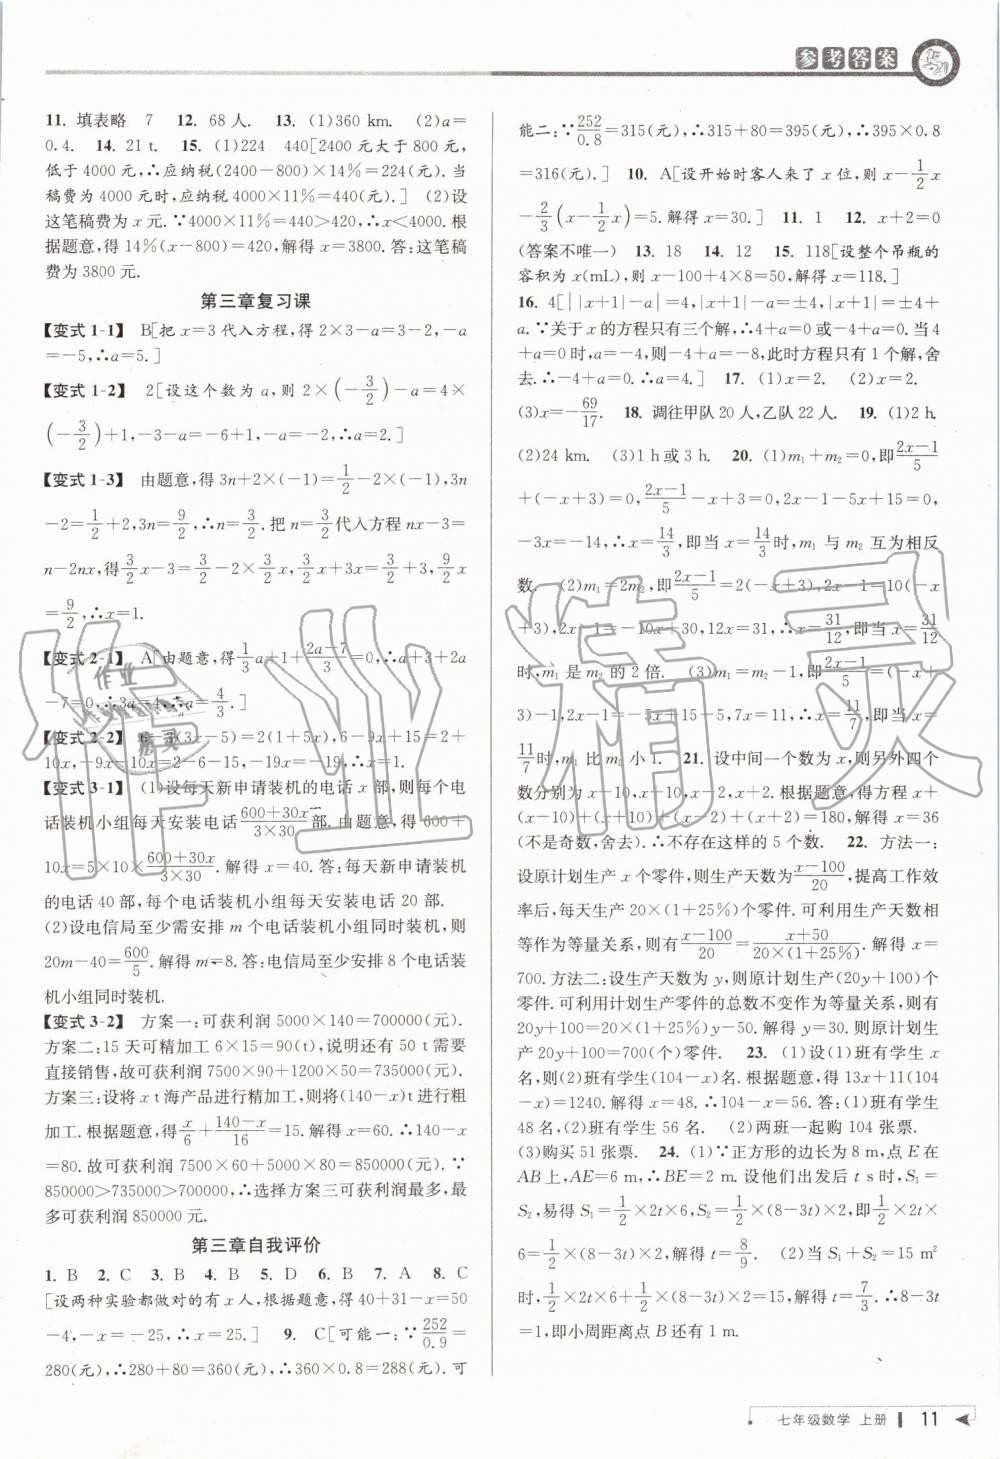 参考答案
11. 填表略　7　12. 68人.　13. (1)360 km.　(2)a=
0.4.　14. 21 t.　15. (1)224　440[2400元大于800元,
低于4000元,∴应纳税(2400-800)×14%=224(元).当
稿费为4000元时,应纳税4000×11%=440(元).]　(2)设
这笔稿费为x元.∵4000×11%=440>420,∴x<4000.根
据题意,得14%(x-800)=420,解得x=3800.答:这笔稿
费为3800元.
第三章复习课
【变式1-1】　B[把x=3代入方程,得2×3-a=3-2,-a
=-5,∴a=5.]
【变式1-2】　2[设这个数为a,则2×(-3/2)-a=4×
(-3/2)+1,-3-a=-6+1,-a=-2,∴a=2.]
【变式1-3】　由题意,得3n+2×(-1)=1/2-2×(-1),3n
-2=1/2+2,3n=9/2,∴n=3/2.把n=3/2代入方程nx-3=
n-2nx,得3/2x-3=3/2-2×3/2x,3/2x+3x=3/2+3,9/2x
=9/2,∴x=1.
【变式2-1】　A[由题意,得1/3a+1+(2a-7)/3=0,∴a+3+2a
-7=0,∴3a=4,∴a=4/3.]
【变式2-2】　6-3(3x-5)=2(1+5x),6-9x+15=2+
10x,-9x-10x=2-6-15,-19x=-19,∴x=1.
【变式3-1】　(1)设每天新申请装机的电话x部,则每个电
话装机小组每天安装电话(600+30x)/(3×30)部.由题意,得600+
10x=5×10×(600+30x)/(3×30).解得x=40.答:每天新申请装机
的电话40部,每个电话装机小组每天安装电话20部.
(2)设电信局至少需安排m个电话装机小组同时装机,则
20m-40=600/5.解得m=8.答:电信局至少安排8个电话装
机小组同时装机.
【变式3-2】　方案一:可获利润5000×140=700000(元).
方案二:15天可精加工6×15=90(t),说明还有50 t需要
直接销售,故可获利润7500×90+1200×50=735000(元).
方案三:设将x t海产品进行精加工,则将(140-x)t进行粗
加工.根据题意,得x/6+(140-x)/16=15.解得x=60.∴140-x
=80.故可获利润7500×60+4500×80=850000(元).∵
850000>735000>700000,∴选择方案三可获利润最多,最
多可获利润850000元.
第三章自我评价
1. B　2. C　3. B　4. B　5. D　6. B　7. A　8. C
[设两种实验都做对的有x人,根据题意,得40+31-x=50
-4,-x=-25,∴x=25.]　9. C[可能一:∵252/0.9=
280(元),∴280+80=360(元),∴360×0.8=288(元).可
能二:∵252/0.8=315(元),∴315+80=395(元),∴395×0.8
=316(元).]　10. A[设开始时客人来了x位,则x-1/2x
-2/3(x-1/2x)=5.解得x=30.]　11. 1　12. x+2=0
(答案不唯一)　13. 18　14. 12　15. 118[设整个吊瓶的
容积为x(mL),则x-100+4×8=50,解得x=118.]
16. 4[||x+1|-a|=4,|x+1|-a=±4,|x+1|=±4+
a.∵关于x的方程只有三个解,∴4+a=0或-4+a=0.当4
+a=0时,a=-4,则-4+a=-8,此时方程只有1个解,舍
去.∴-4+a=0.∴a=4.]　17. (1)x=2.　(2)x=2.
(3)x=-69/17.　18. 调往甲队20人,乙队22人.　19. (1)2 h.
(2)24 km.　(3)1 h或3 h.　20. (1)m₁+m₂=0,即(2x-1)/5
+(-x+3)=0,(2x-1)/5-x+3=0,2x-1-5x+15=0,
-3x=-14,∴x=14/3,即当x=14/3时,m₁与m₂互为相反
数.　(2)m₁=2m₂,即(2x-1)/5=2(-x+3),2x-1=10(-x
+3),2x-1=-10x+30,12x=31,∴x=31/12,即当x=31/12
时,m₁是m₂的2倍.　(3)m₁=m₂-1,即(2x-1)/5=(-x+
3)-1,2x-1=-5x+15-5,7x=11,∴x=11/7,即当x=
11/7时,m₁比m₂小1.　21. 设中间一个数为x,则另外四个
数分别为x-10,x+10,x-2,x+2.根据题意,得方程x+
(x-10)+(x+10)+(x-2)+(x+2)=180,解得x=36
(不是奇数,舍去).∴不存在这样的5个数.　22. 方法一:
设原计划生产x个零件,则生产天数为(x-100)/20,提高工作效
率后,每天生产20×(1+25%)个零件.可利用生产天数相
等作为等量关系,则有(x-100)/20=(x+50)/(20×(1+25%)).解得x=
700.方法二:设生产天数为y,则原计划生产(20y+100)个
零件.可利用计划生产零件的总数不变作为等量关系,则有
20y+100=20×(1+25%)y-50.解得y=30.则原计划生
产20y+100=700(个)零件.　23. (1)设(1)班有学生x
名,则(2)班有学生(104-x)名.根据题意,得13x+11(104
-x)=1240.解得x=48.∴104-x=56.答:(1)班有学生
48名,(2)班有学生56名.　(2)两班一起购104张票.
(3)购买51张票.　24. (1)∵正方形的边长为8 m,点E在
AB上,AE=6 m,∴BE=2 m.设他们出发后t s时,S₁=
S₂,易得S₁=1/2×2t×6,S₂=1/2×(8-3t)×2,即1/2×2t×
6=1/2×(8-3t)×2,解得t=8/9.　(2)当S₁+S₂=15 m²
时,1/2×2t×6+1/2×(8-3t)×2=15,解得t=7/3.∴8-3t
=1,即小周距离点B还有1 m.
七年级数学　上册　11
作业精灵